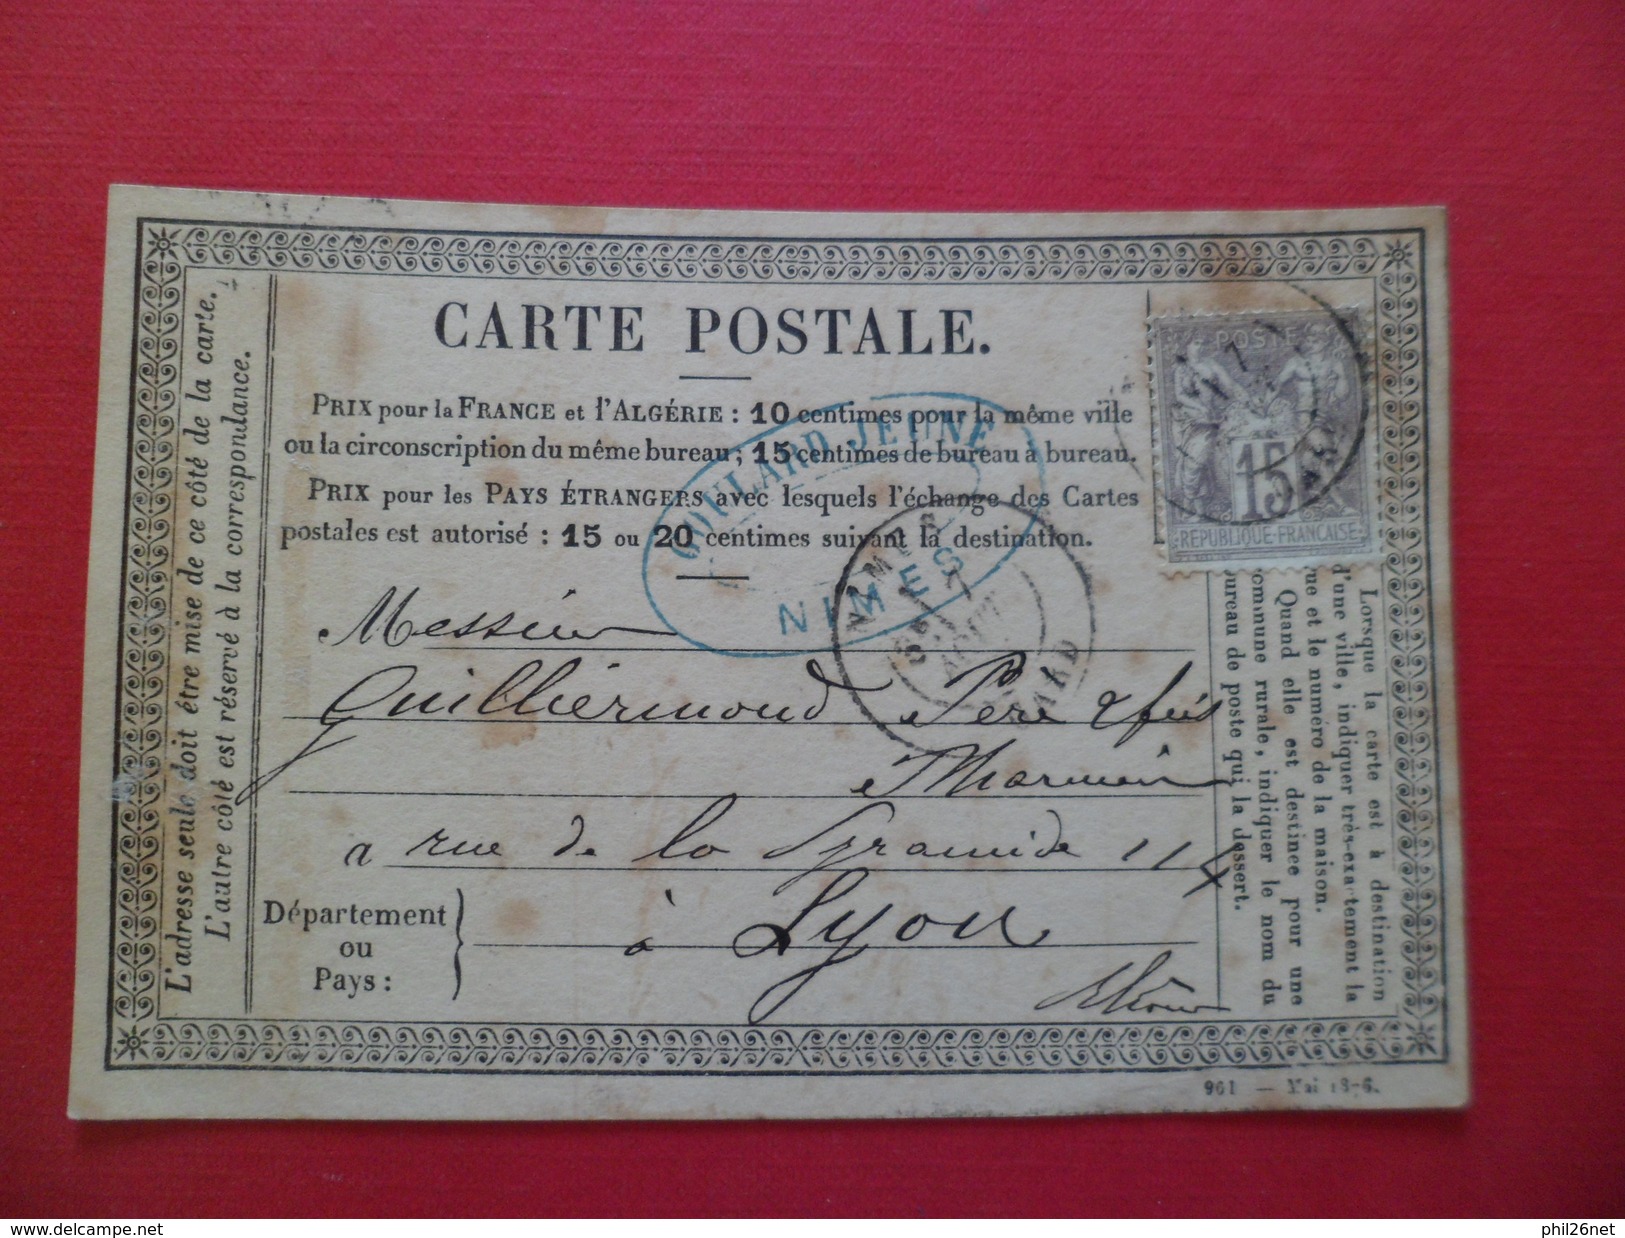 CARTE POSTALE.
PRIX pour la FRANCE et l'ALGÉRIE : 10 centimes pour la même ville
ou la circonscription du même bureau ; 15 centimes de bureau à bureau.
PRIX pour les PAYS ÉTRANGERS avec lesquels l'échange des Cartes
postales est autorisé : 15 ou 20 centimes suivant la destination.
GOULARD JEUNE
NIMES
NIMES
GARD
POSTE
15
REPUBLIQUE FRANCAISE
Messieurs
Guilliermond Père & fils
a rue de la Pyramide 114
Département
ou
Pays :
à Lyon
Rhône
L'adresse seule doit être mise de ce côté de la carte.
L'autre côté est réservé à la correspondance.
Lorsque la carte est à destination
d'une ville, indiquer très-exactement la
rue et le numéro de la maison.
Quand elle est destinée pour une
commune rurale, indiquer le nom du
bureau de poste qui la dessert.
901 — Mai
delcampe.net
phil26net